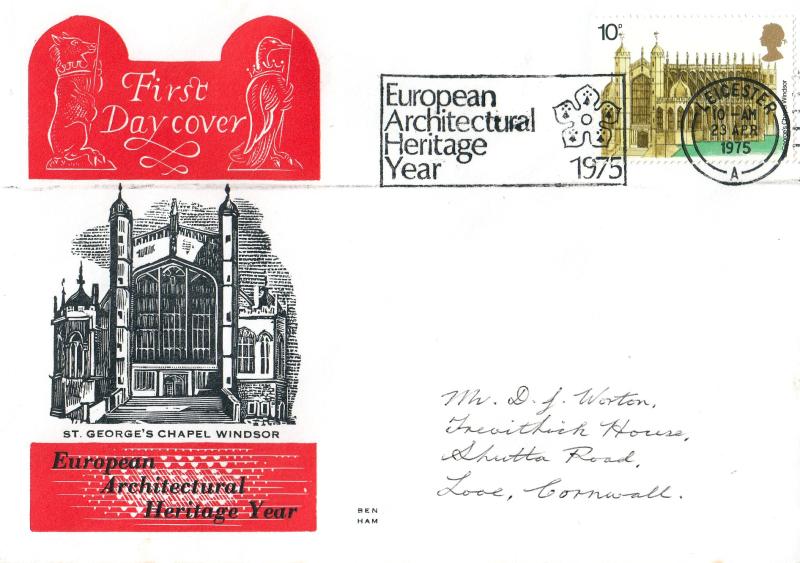 First
Day cover
European
Architectural
Heritage
Year
1975
10P
LEICESTER
10 - AM
23 APR
1975
A
ST. GEORGE'S CHAPEL WINDSOR
European
Architectural
Heritage Year
BEN
HAM
Mr. D. J. Worton,
Trevithick House,
Shutta Road,
Looe, Cornwall.